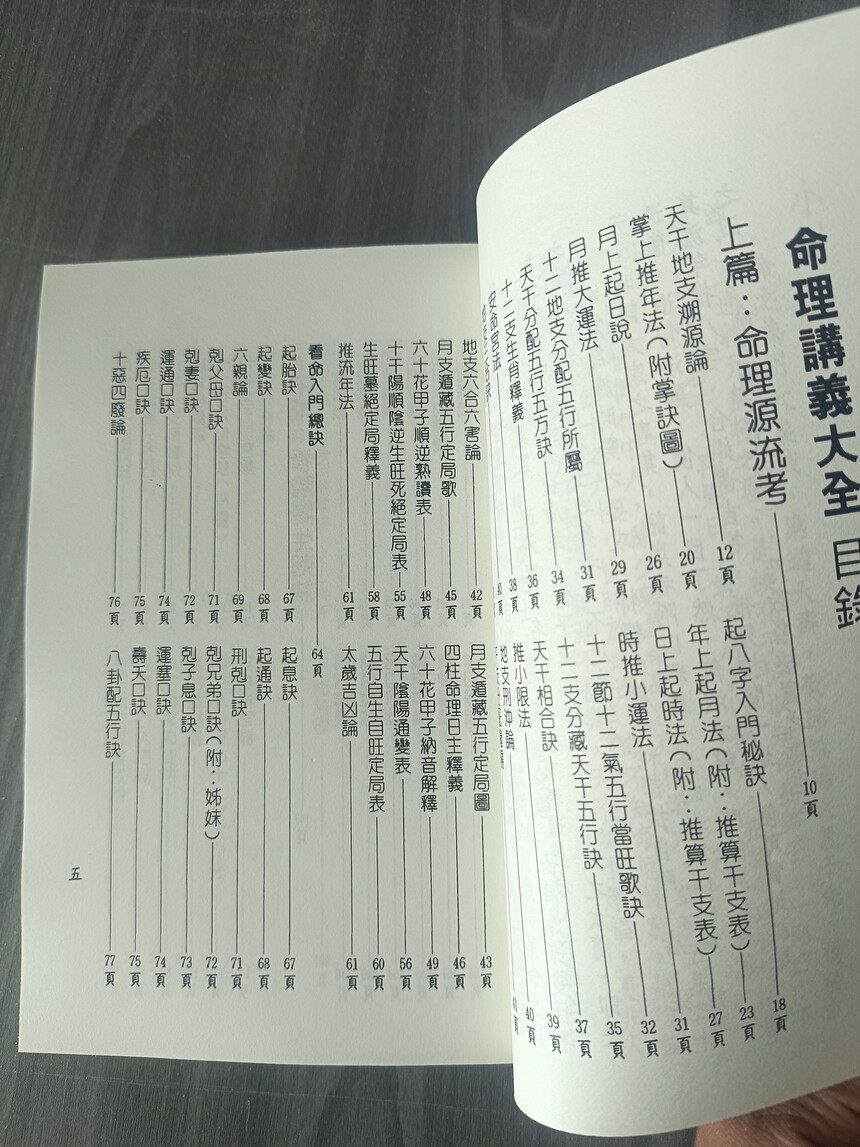 命理講義大全 目錄
上篇：命理源流考 10頁
天干地支溯源論 12頁
起八字入門秘訣 18頁
掌上推年法（附掌訣圖） 20頁
年上起月法（附：推算干支表） 23頁
月上起日說 26頁
日上起時法（附：推算干支表） 27頁
月推大運法 29頁
時推小運法 31頁
十二地支分配五行所屬 31頁
十二節十二氣五行當旺歌訣 32頁
天干分配五行五方訣 34頁
十二支分藏天干五行訣 35頁
十二支生肖釋義 36頁
天干相合訣 37頁
安命宮法 38頁
推小限法 39頁
40頁
地支刑沖論 40頁
地支六合六害論 42頁
月支遁藏五行定局圖 43頁
月支遁藏五行定局歌 45頁
四柱命理日主釋義 46頁
六十花甲子順逆熟讀表 48頁
六十花甲子納音解釋 49頁
十干陽順陰逆生旺死絕定局表 55頁
天干陰陽通變表 56頁
生旺墓絕定局釋義 58頁
五行自生自旺定局表 60頁
推流年法 61頁
太歲吉凶論 61頁
看命入門總訣 64頁
起胎訣 67頁
起息訣 67頁
起變訣 68頁
起通訣 68頁
六親論 69頁
刑剋口訣 71頁
剋父母口訣 71頁
剋兄弟口訣（附：姊妹） 72頁
剋妻口訣 72頁
剋子息口訣 73頁
運通口訣 74頁
運塞口訣 74頁
疾厄口訣 75頁
壽夭口訣 75頁
十惡四廢論 76頁
八卦配五行訣 77頁
五